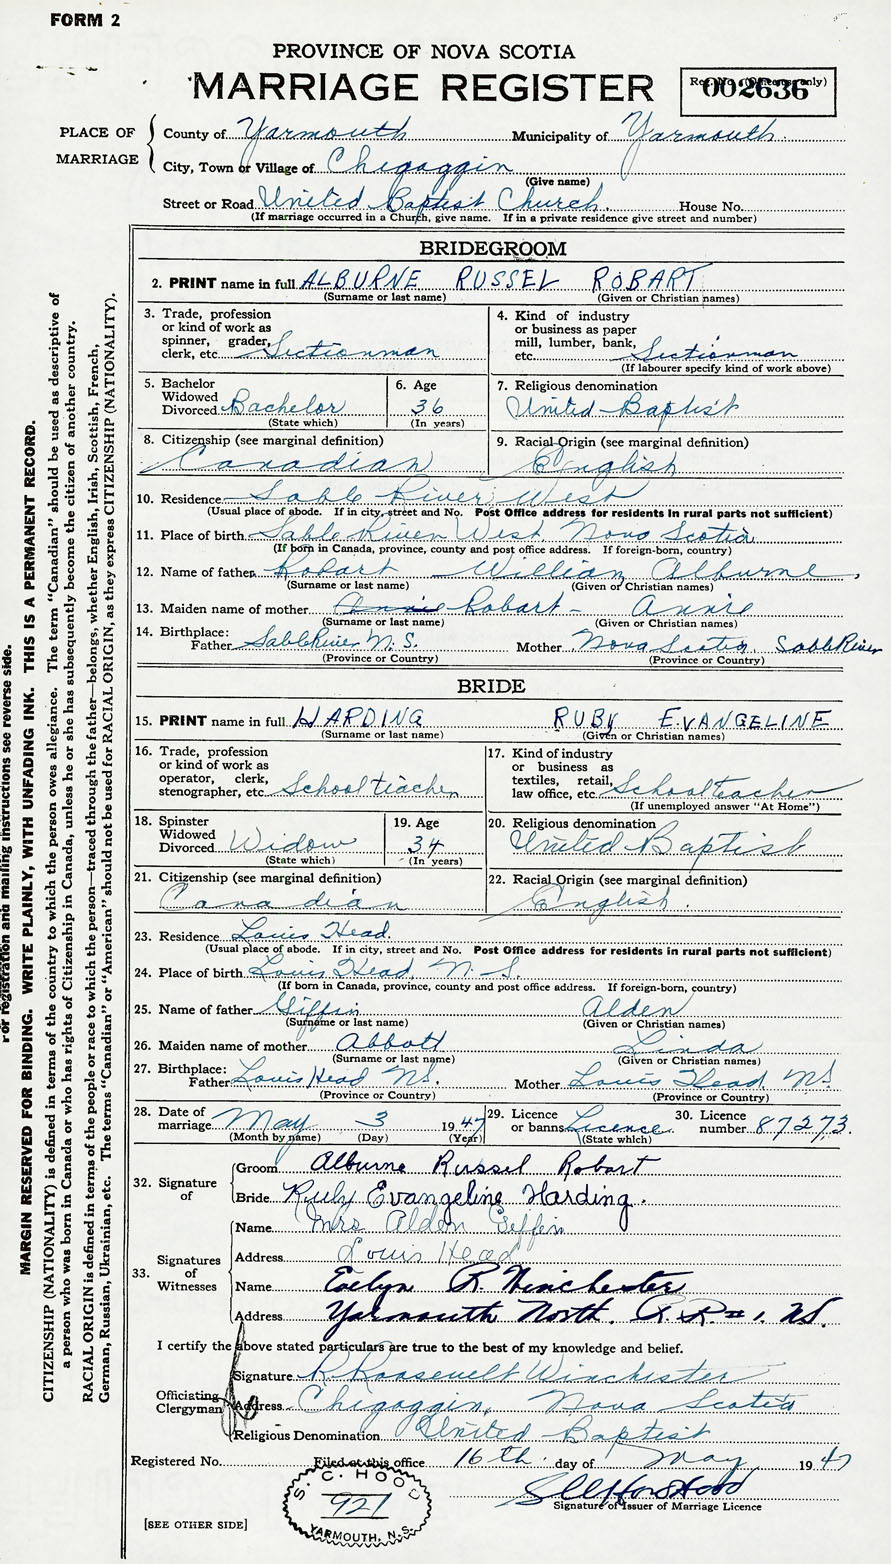 FORM 2
PROVINCE OF NOVA SCOTIA
MARRIAGE REGISTER
Reg. No. (Office use only)
002636
PLACE OF MARRIAGE
County of Yarmouth Municipality of Yarmouth
City, Town or Village of Chegoggin
(Give name)
Street or Road United Baptist Church. House No.
(If marriage occurred in a Church, give name. If in a private residence give street and number)
BRIDEGROOM
2. PRINT name in full ALBURNE RUSSEL ROBART
(Surname or last name) (Given or Christian names)
3. Trade, profession or kind of work as spinner, grader, clerk, etc. Sectionman
4. Kind of industry or business as paper mill, lumber, bank, etc. Sectionman
(If labourer specify kind of work above)
5. Bachelor Widowed Divorced Bachelor
(State which)
6. Age 36
(In years)
7. Religious denomination United Baptist
8. Citizenship (see marginal definition) Canadian
9. Racial Origin (see marginal definition) English
10. Residence Sable River West
(Usual place of abode. If in city, street and No. Post Office address for residents in rural parts not sufficient)
11. Place of birth Sable River West Nova Scotia
(If born in Canada, province, county and post office address. If foreign-born, country)
12. Name of father Robart William Alburne
(Surname or last name) (Given or Christian names)
13. Maiden name of mother Annie Robart - Annie
(Surname or last name) (Given or Christian names)
14. Birthplace: Father Sable River N.S. Mother Nova Scotia Sable River
(Province or Country) (Province or Country)
BRIDE
15. PRINT name in full HARDING RUBY EVANGELINE
(Surname or last name) (Given or Christian names)
16. Trade, profession or kind of work as operator, clerk, stenographer, etc. School teacher
17. Kind of industry or business as textiles, retail, law office, etc. School teacher
(If unemployed answer "At Home")
18. Spinster Widowed Divorced Widow
(State which)
19. Age 34
(In years)
20. Religious denomination United Baptist
21. Citizenship (see marginal definition) Canadian
22. Racial Origin (see marginal definition) English.
23. Residence Louis Head.
(Usual place of abode. If in city, street and No. Post Office address for residents in rural parts not sufficient)
24. Place of birth Louis Head, N.S.
(If born in Canada, province, county and post office address. If foreign-born, country)
25. Name of father Giffin Alden
(Surname or last name) (Given or Christian names)
26. Maiden name of mother Abbott Linda
(Surname or last name) (Given or Christian names)
27. Birthplace: Father Louis Head N.S. Mother Louis Head, N.S.
(Province or Country) (Province or Country)
28. Date of marriage May 3 1947
(Month by name) (Day) (Year)
29. Licence or banns Licence.
(State which)
30. Licence number 87273.
32. Signature of
Groom Alburne Russel Robart
Bride Ruby Evangeline Harding.
33. Signatures of Witnesses
Name Mrs Alden Giffin
Address Louis Head
Name Evelyn R. Winchester
Address Yarmouth North. R.R #1. N.S.
I certify the above stated particulars are true to the best of my knowledge and belief.
Officiating Clergyman
Signature R. Roosevelt Winchester
Address Chegoggin, Nova Scotia
Religious Denomination United Baptist
Registered No. Filed at this office 16th day of May 1947
Signature of Issuer of Marriage Licence
S. C. HOOD
921
YARMOUTH, N.S.
[SEE OTHER SIDE]
For registration and mailing instructions see reverse side.
MARGIN RESERVED FOR BINDING. WRITE PLAINLY, WITH UNFADING INK. THIS IS A PERMANENT RECORD.
CITIZENSHIP (NATIONALITY) is defined in terms of the country to which the person owes allegiance. The term "Canadian" should be used as descriptive of
a person who was born in Canada or who has rights of Citizenship in Canada, unless he or she has subsequently become the citizen of another country.
RACIAL ORIGIN is defined in terms of the people or race to which the person—traced through the father—belongs, whether English, Irish, Scottish, French,
German, Russian, Ukrainian, etc. The terms "Canadian" or "American" should not be used for RACIAL ORIGIN, as they express CITIZENSHIP (NATIONALITY).